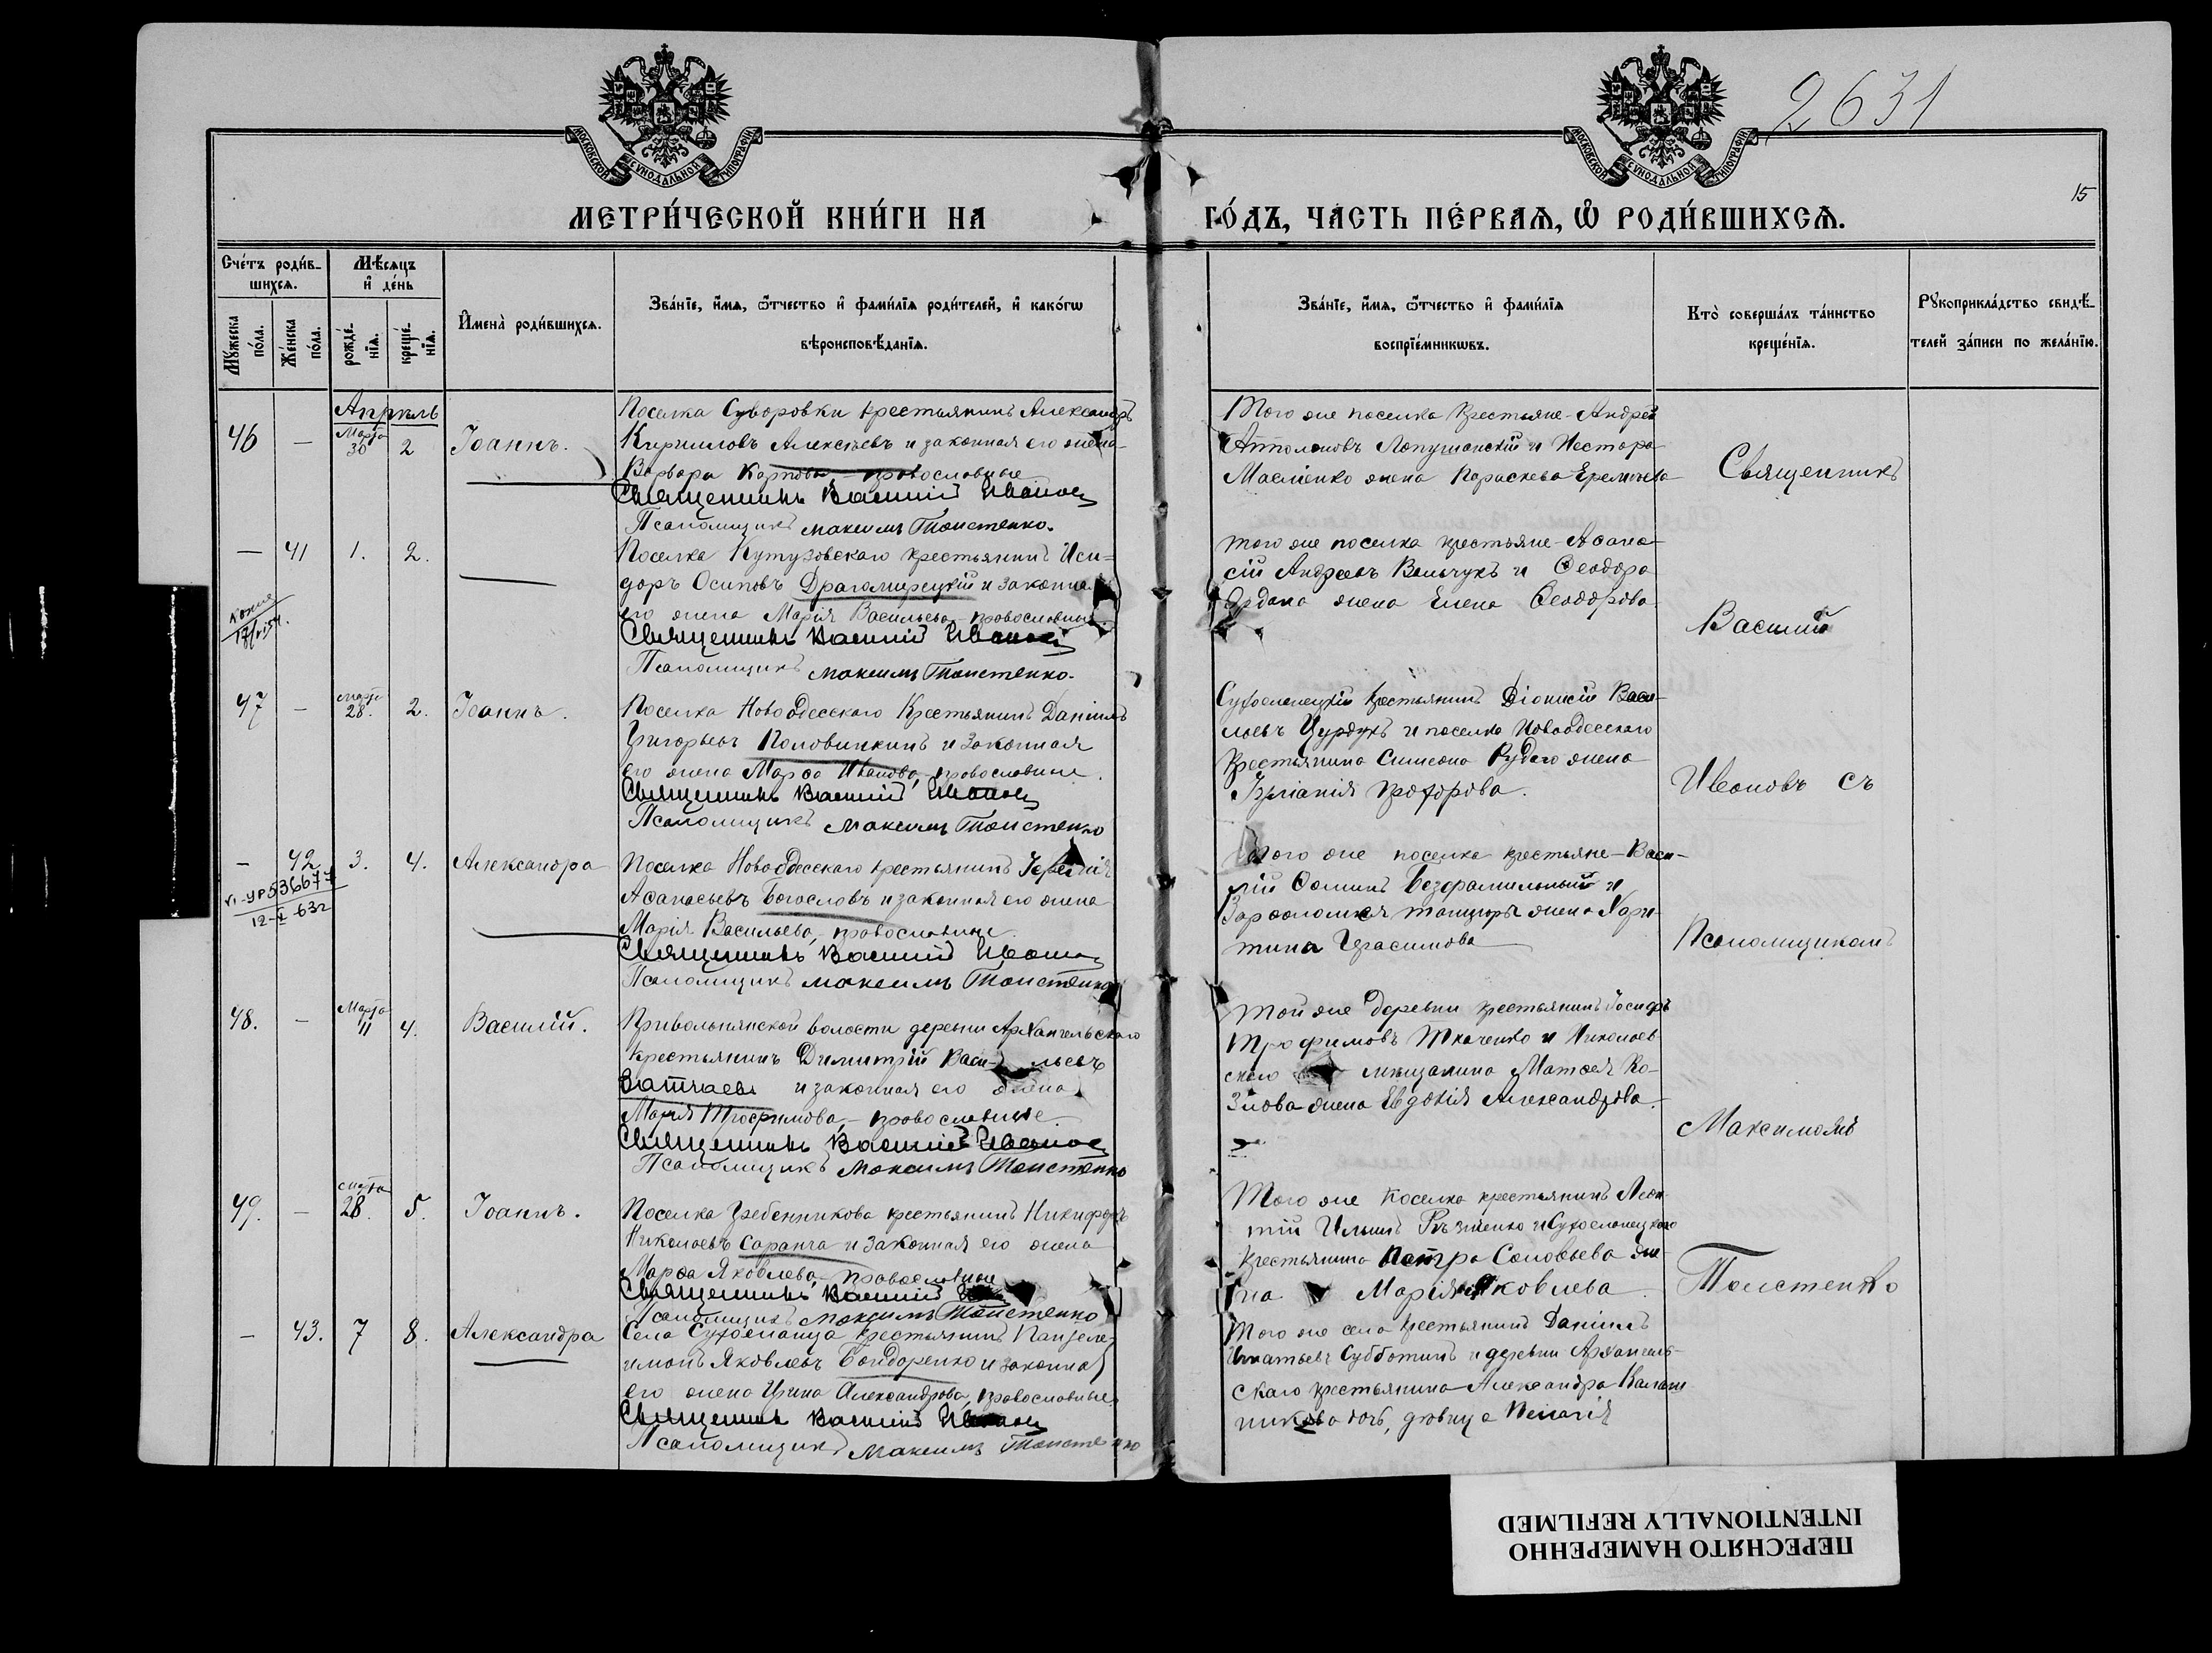 2631
15
МОСКОВСКОЙ СѴНОДАЛЬНОЙ ТИПОГРАФІИ
МОСКОВСКОЙ СѴНОДАЛЬНОЙ ТИПОГРАФІИ
МЕТРИ́ЧЕСКОЙ КНИ́ГИ НА
ГО́ДЪ, ЧАСТЬ ПЕ́РВАѦ, Ѽ РОДИ́ВШИХСѦ.
Сче́тъ роди́в-
шихсѧ.
Мѣсяцъ
и де́нь
Му́жеска
по́ла.
Же́нска
по́ла.
рожде́-
нїѧ.
креще́-
нїѧ.
Имена̀ роди́вшихсѧ.
Зва́нїе, и́мѧ, ѻ́тчество и фами́лїѧ роди́телей, и како́гѡ
вѣроисповѣ́данїѧ.
Зва́нїе, и́мѧ, ѻ́тчество и фами́лїѧ
воспрїе́мникѡвъ.
Кто̀ соверша́лъ та́инство
креще́нїѧ.
Рꙋкоприкла́дство свидѣ́-
телей за́писи по жела́нїю.
Апрель
46 — Марта 30 2 Іоаннъ.
Поселка Суворовки крестьянинъ Александръ
Кирилловъ Алексѣевъ и законная его жена
Варвара Карпова, - православные
Священникъ Василій Ивановъ
Псаломщикъ Максимъ Толстенко.
Того же поселка крестьяне - Андрей
Лопушанскій и Нестора
жена Параскева
— 41 1. 2.
Поселка Кутузовскаго крестьянинъ Иси-
доръ Осиповъ Драгомирецкій и законная
его жена Марія Васильева, православные.
Священникъ Василій Ивановъ
Псаломщикъ Максимъ Толстенко.
того же поселка крестьяне - Аѳана-
сій Андреевъ Вальчукъ и Ѳеодора
жена Елена Ѳеодорова.
47 — Марта 28. 2. Іоаннъ.
Поселка Новоодесскаго Крестьянинъ Даніилъ
Григорьевъ Половинкинъ и законная
его жена Марѳа Иванова, православные.
Священникъ Василій Ивановъ
Псаломщикъ Максимъ Толстенко
Сухоеланецкій крестьянинъ Діонисій Васи-
льевъ Цурдукъ и поселка Новоодесскаго
Крестьянина Симеона Рудого жена
Прохорова.
— 42 3. 4. Александра
VI-УР 536677
12-V-63г
Поселка Новоодесскаго крестьянинъ
Аѳанасьевъ Богословъ и законная его жена
Марія Васильева, - православные.
Священникъ Василій Ивановъ
Псаломщикъ Максимъ Толстенко
Того же поселка крестьяне - Васи-
лій Ѳоминъ Безфамильный и
Варѳоломея жена Хари-
тина Герасимова
48. — Марта 11 4. Василій.
Привольнянской волости деревни Архангельскаго
Крестьянинъ Димитрій Васильевъ
и законная его жена
Марія Трофимова, - православные.
Священникъ Василій Ивановъ
Псаломщикъ Максимъ Толстенко
Той же деревни крестьянинъ Іосифъ
Трофимовъ Ткаченко и Николаев-
скаго мѣщанина Матѳея Ко-
злова жена Евдокія Александрова.
49. — Марта 28. 5. Іоаннъ.
Поселка Гребенникова крестьянинъ Никифоръ
Николаевъ Саранча и законная его жена
Марѳа Яковлева, - православные
Священникъ Василій
Псаломщикъ Максимъ Толстенко
Того же поселка крестьянинъ Леон-
тій Ильинъ и Сухоеланецкаго
Крестьянина Петра Соловьева же-
на Марія Яковлева.
— 43. 7 8. Александра
Села Сухоеланца крестьянинъ Пантеле-
имонъ Яковлевъ Бондаренко и законная
его жена Ирина Александрова, православные
Священникъ Василій Ивановъ
Псаломщикъ Максимъ Толстенко
Того же села крестьянинъ Даніилъ
Игнатьевъ Субботинъ и деревни Архангель-
скаго крестьянина Александра Калаш-
никова дочь, дѣвица Пелагія
Священникъ
Василій
Ивановъ съ
Псаломщикомъ
Максимомъ
Толстенко
ПЕРЕСНЯТО НАМЕРЕННО
INTENTIONALLY REFILMED